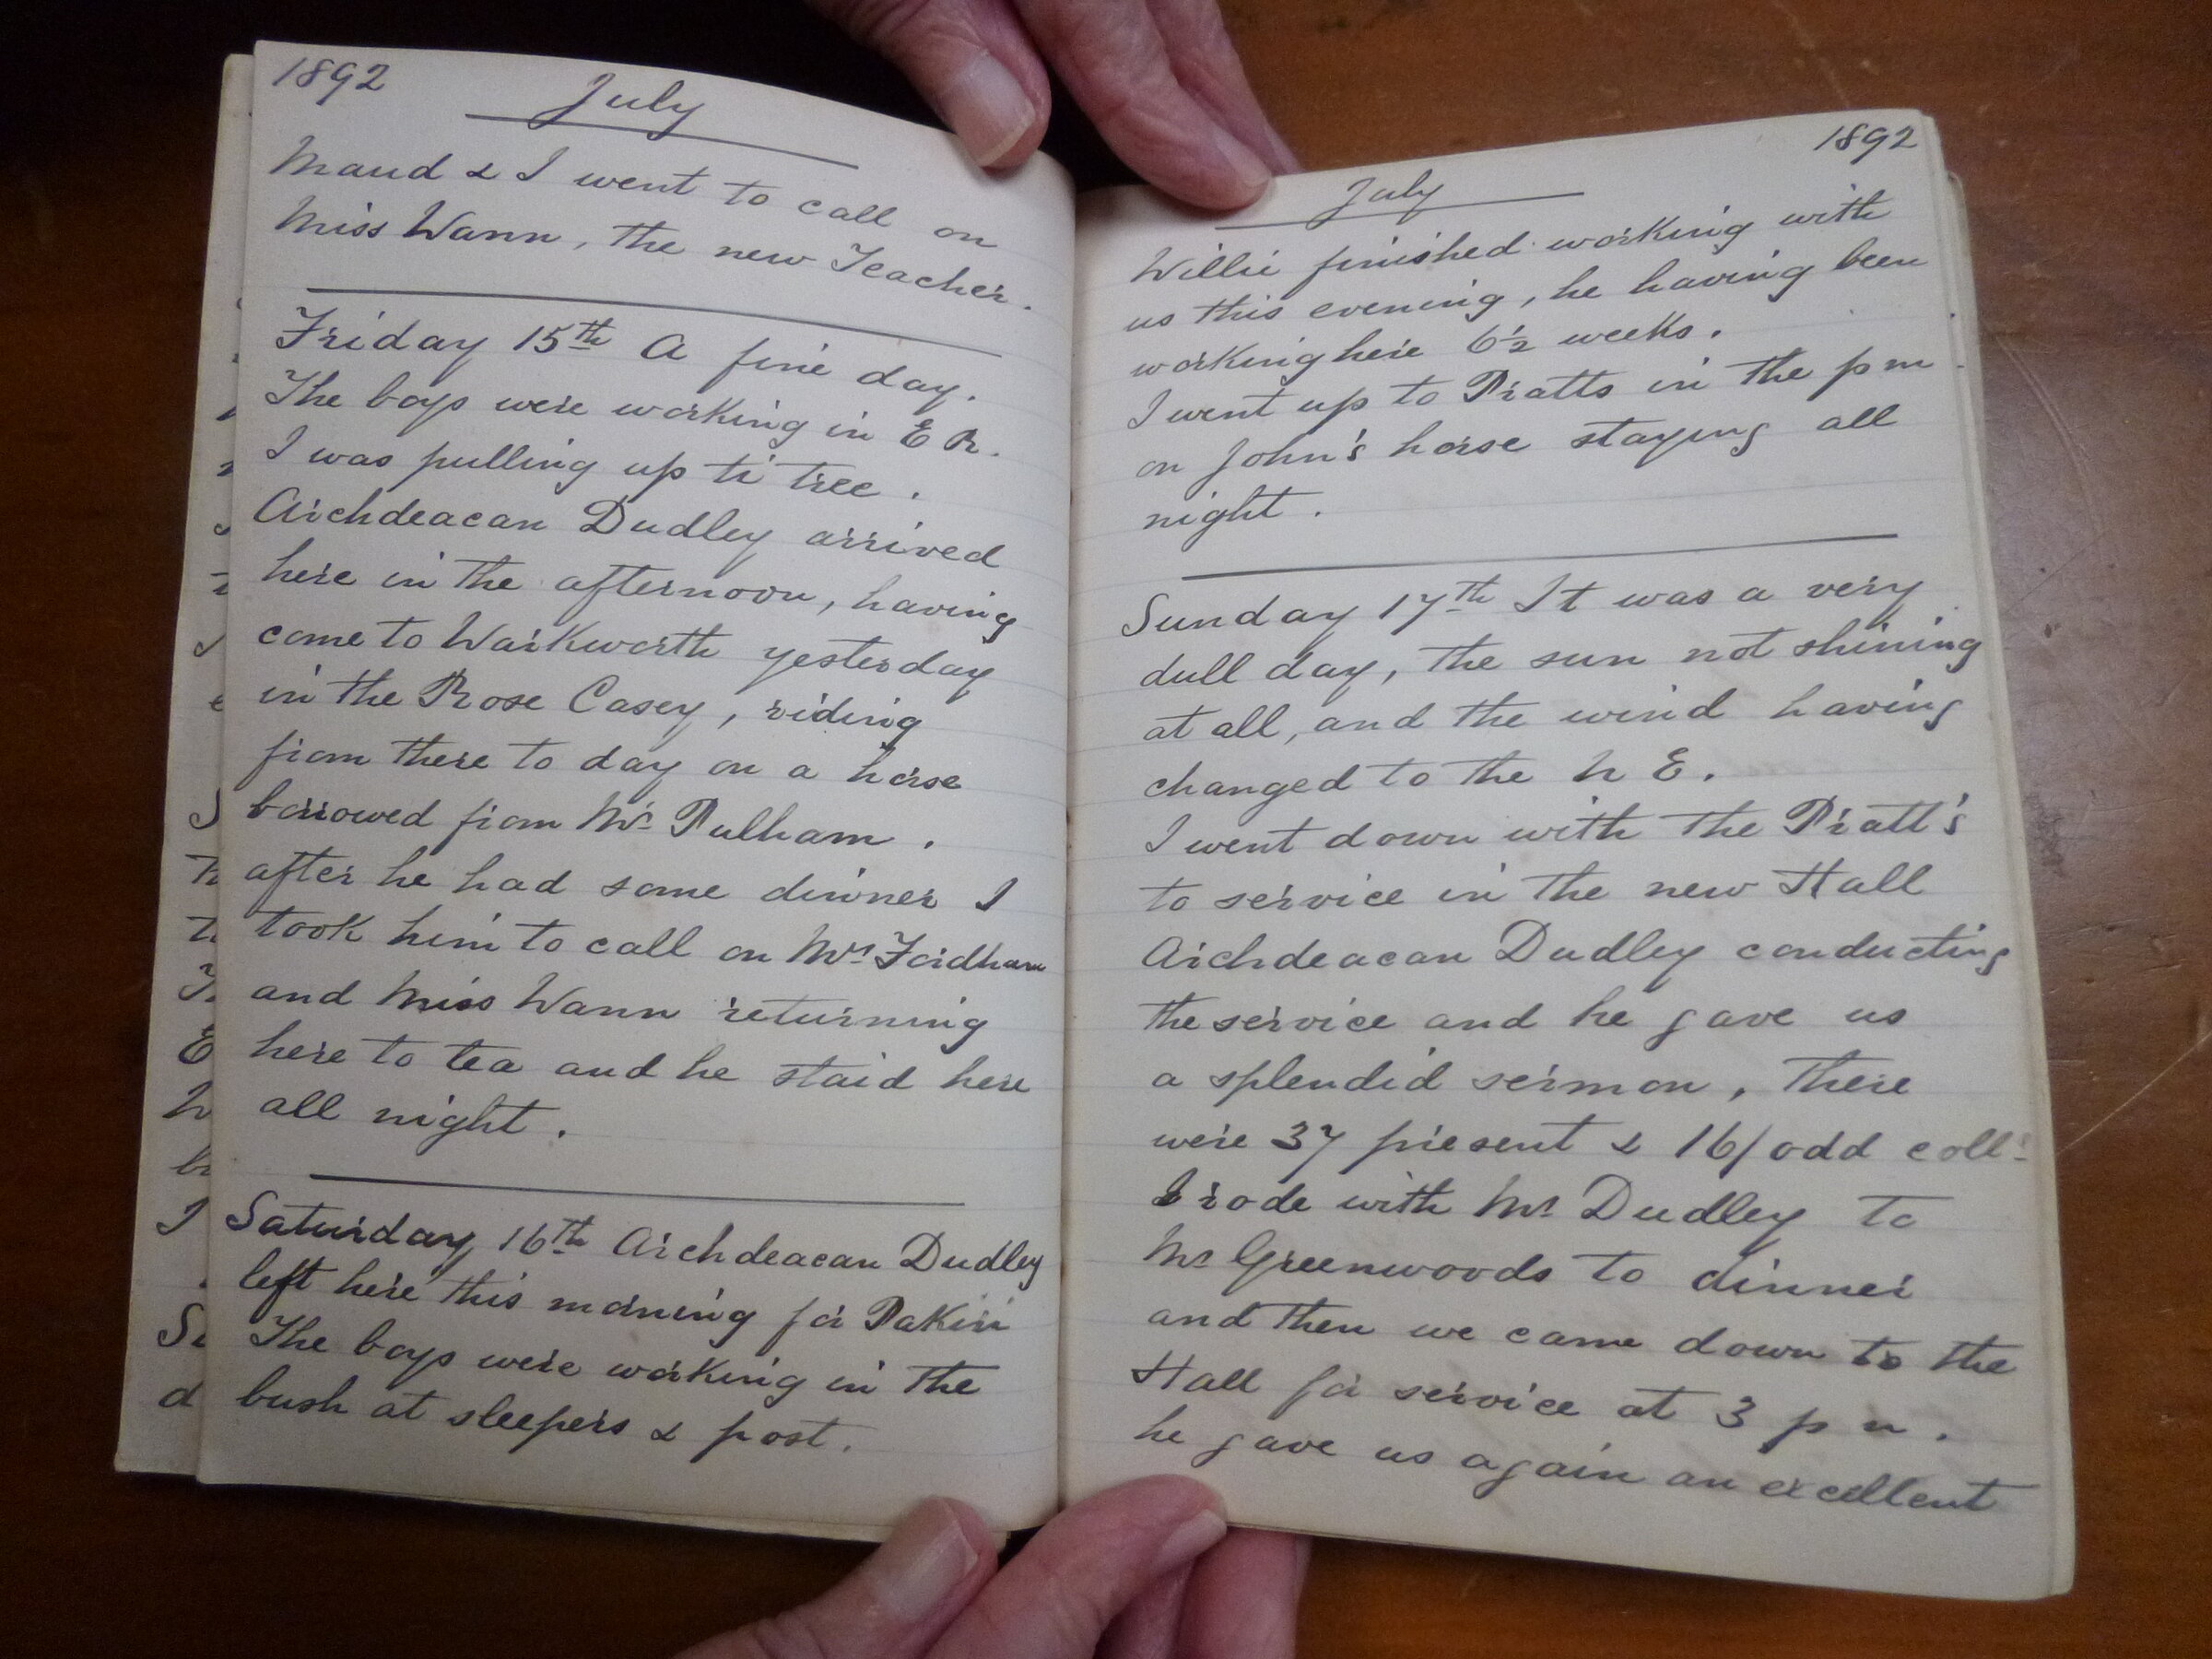 1892
July
Maud & I went to call on
Miss Wann, the new Teacher.
Friday 15th A fine day.
The boys were working in E R.
I was pulling up ti tree.
Archdeacan Dudley arrived
here in the afternoon, having
come to Warkworth yesterday
in the Rose Casey, riding
from there to day on a horse
borrowed from Mr Pulham.
after he had some dinner I
took him to call on Mrs Fordham
and Miss Wann returning
here to tea and he staid here
all night.
Saturday 16th Archdeacan Dudley
left here this morning for Pakiri
The boys were working in the
bush at sleepers & post.
1892
July
Willie finished working with
us this evening, he having been
working here 6½ weeks.
I went up to Pratts in the p m
on John's horse staying all
night.
Sunday 17th It was a very
dull day, the sun not shining
at all, and the wind having
changed to the N E.
I went down with the Pratt's
to service in the new Hall
Archdeacan Dudley conducting
the service and he gave us
a splendid sermon, There
were 37 present & 16/ odd coll:
I rode with Mr Dudley to
Mr Greenwoods to dinner
and then we came down to the
Hall for service at 3 p m.
he gave us again an excellent